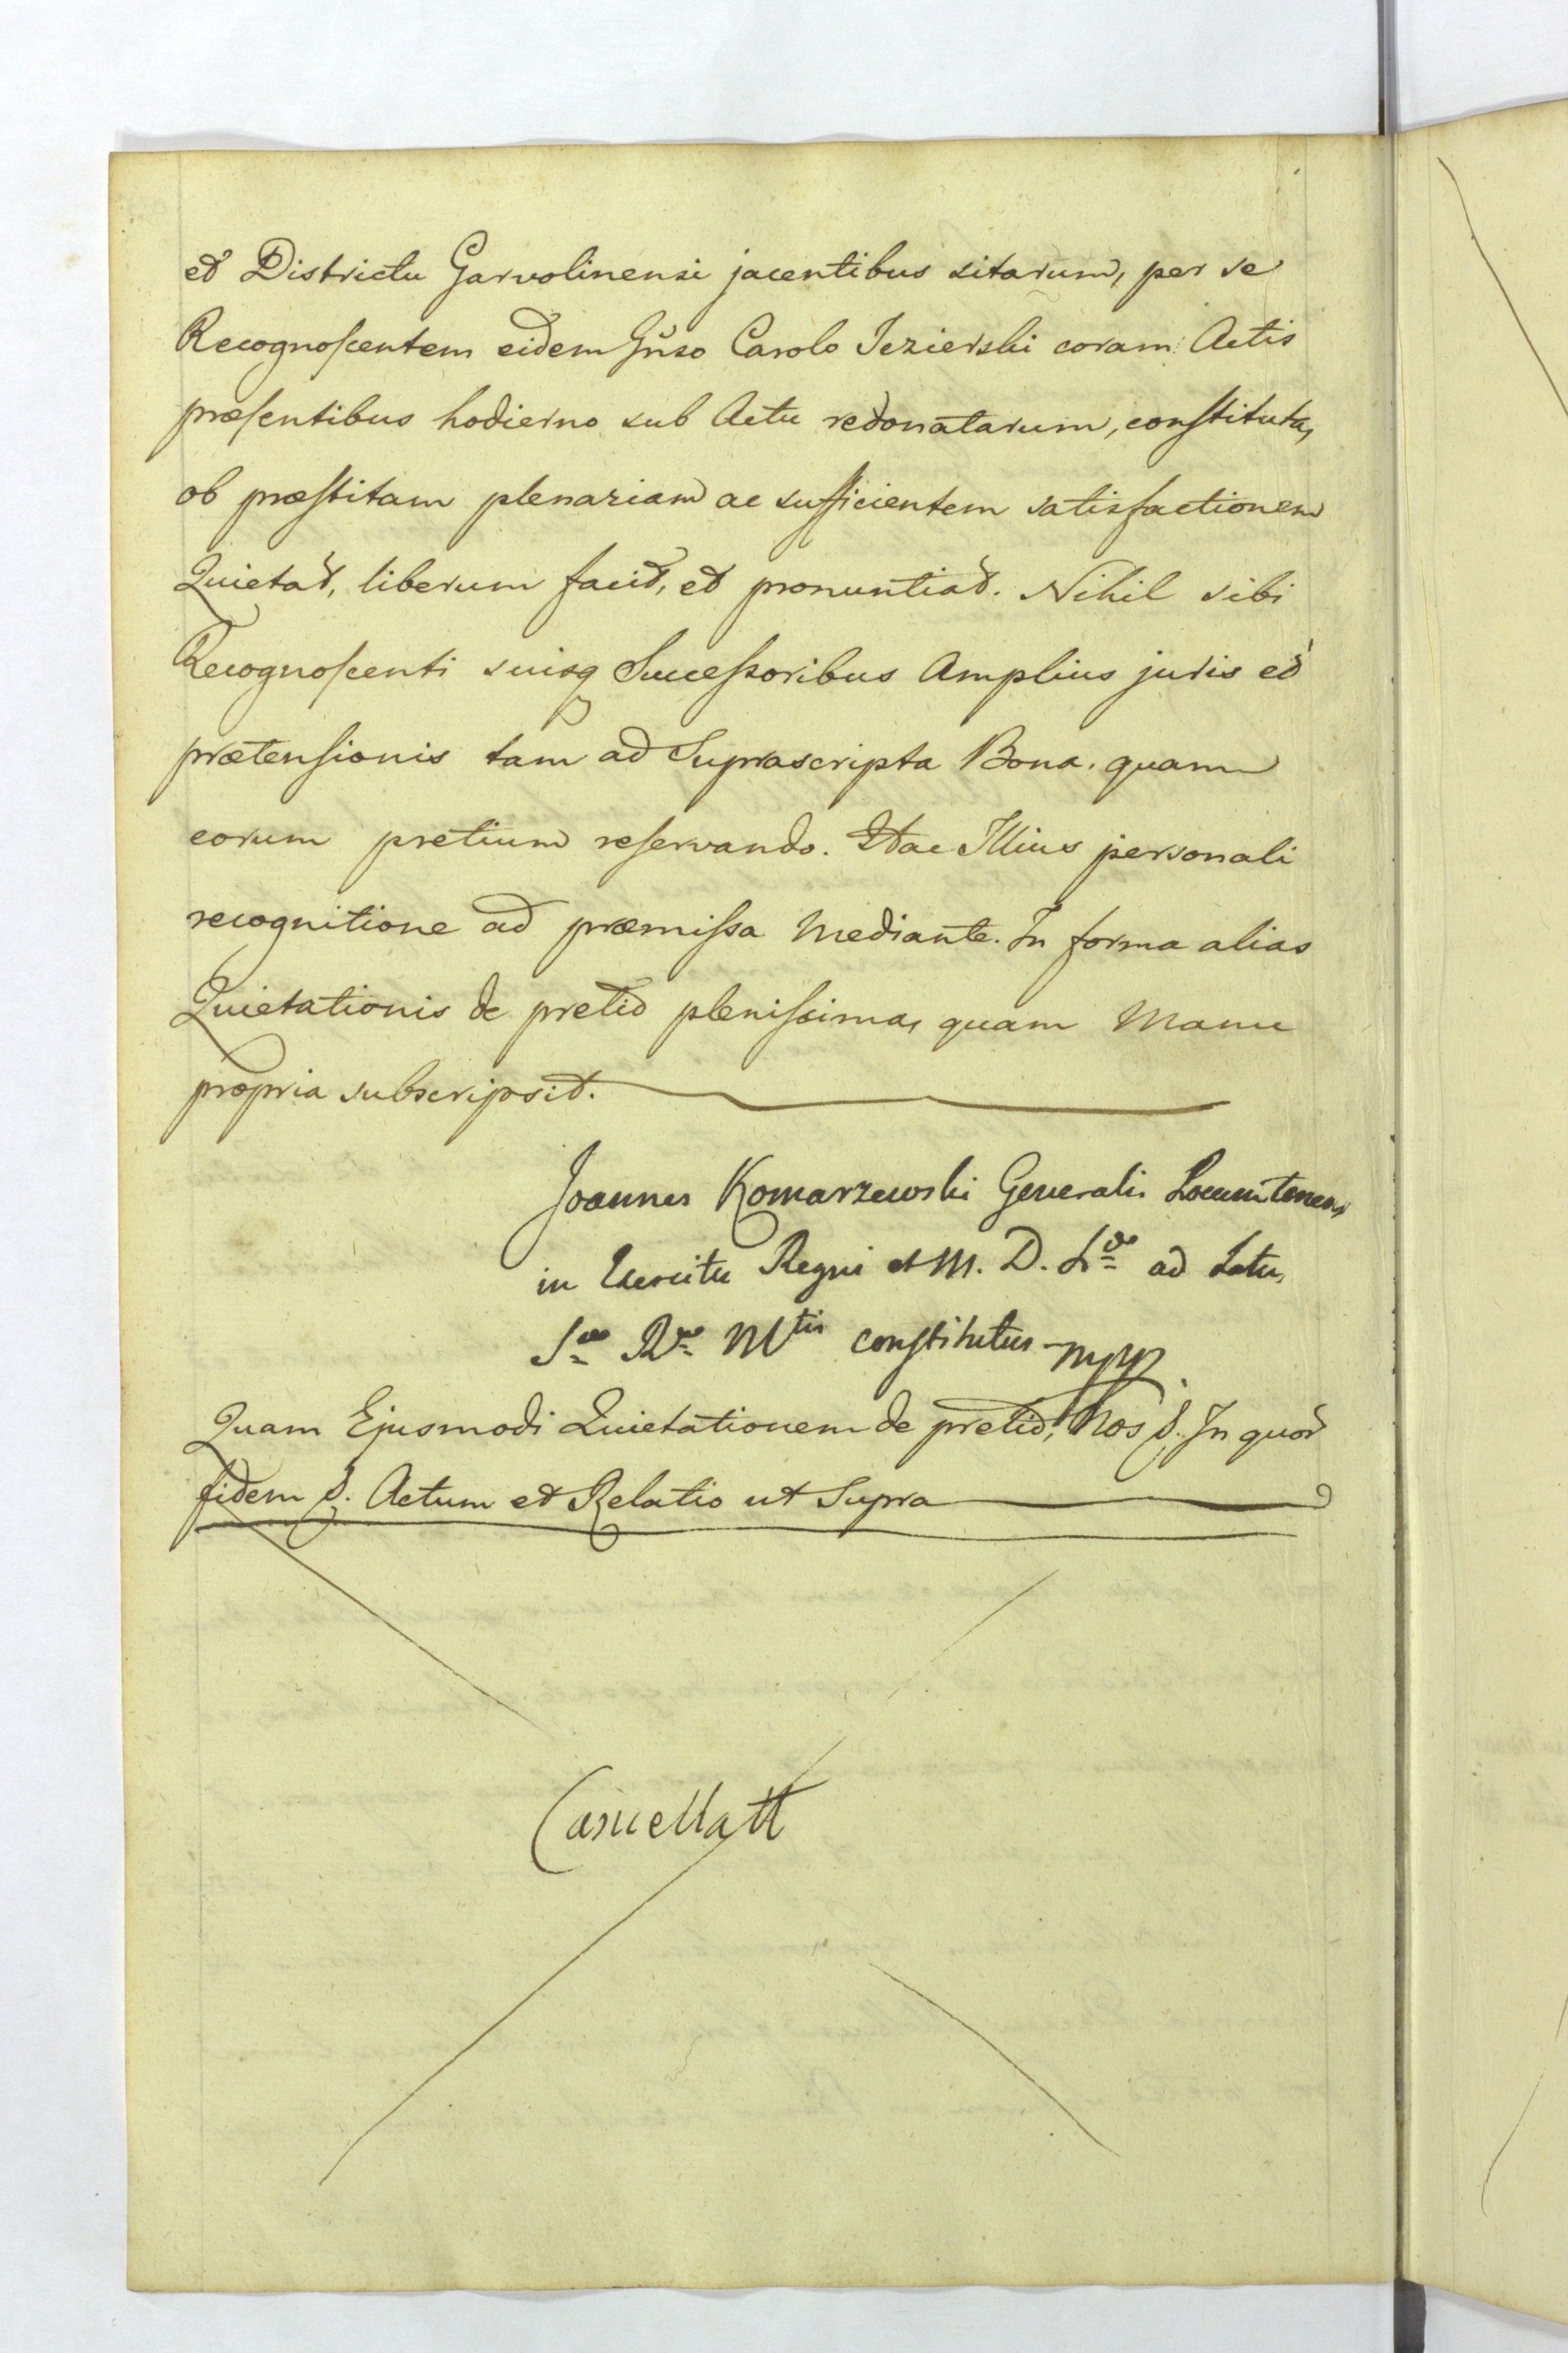 et Districtu Garvolinensi jacentibus sitarum, per se
Recognoſcentem eidem Gñso Carolo Jezierski coram Actis
præſentibus hodierno sub Actu redonatarum, conſtituta,
ob præſtitam plenariam ac sufficientem satisfactionem
Quietat, liberum facit, et pronuntiat. Nihil sibi
Recognoſcenti suisq Succeſsoribus Amplius juris et
prætenſionis tam ad Suprascripta Bona, quam
eorum pretium reſervando. Hac Illius personali
recognitione ad præmiſsa Mediante. In forma alias
Quietationis de pretio pleniſsima, quam Manu
propria subscripsit.
Joannes Komarzewski Generalis Locumtenens
in Exercitu Regni et M. D. L. ad Latus
S R M^tis conſtitutus mpp
Quam Ejusmodi Quietationem de pretio, Nos &. In quor
fidem &. Actum et Relatio ut Supra
Cancellatt